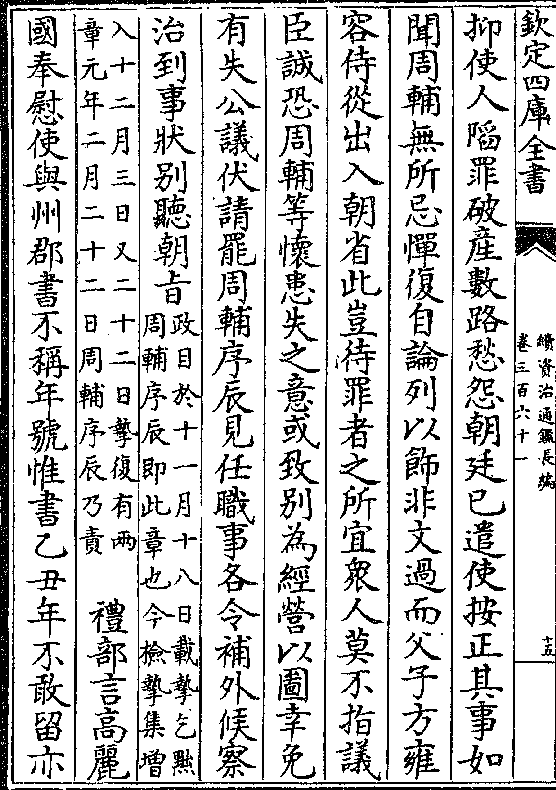 欽定四庫全書
續資治通鑑長編
卷三百六十一
十五
抑使人陷罪破産數路愁怨朝廷已遣使按正其事如
聞周輔無所忌憚復自論列以飾非文過而父子方雍
容侍從出入朝省此豈待罪者之所宜衆人莫不指議
臣誠恐周輔等懷患失之意或致别為經營以圖幸免
有失公議伏請罷周輔序辰見任職事各令補外候察
治到事狀别聽朝㫖
政目於十一月十八日載摯乞黜
周輔序辰即此章也今檢摯集增
入十二月三日又二十二日摯復有兩
章元年二月二十二日周輔序辰乃責
禮部言高麗
國奉慰使與州郡書不稱年號惟書乙丑年不敢留亦